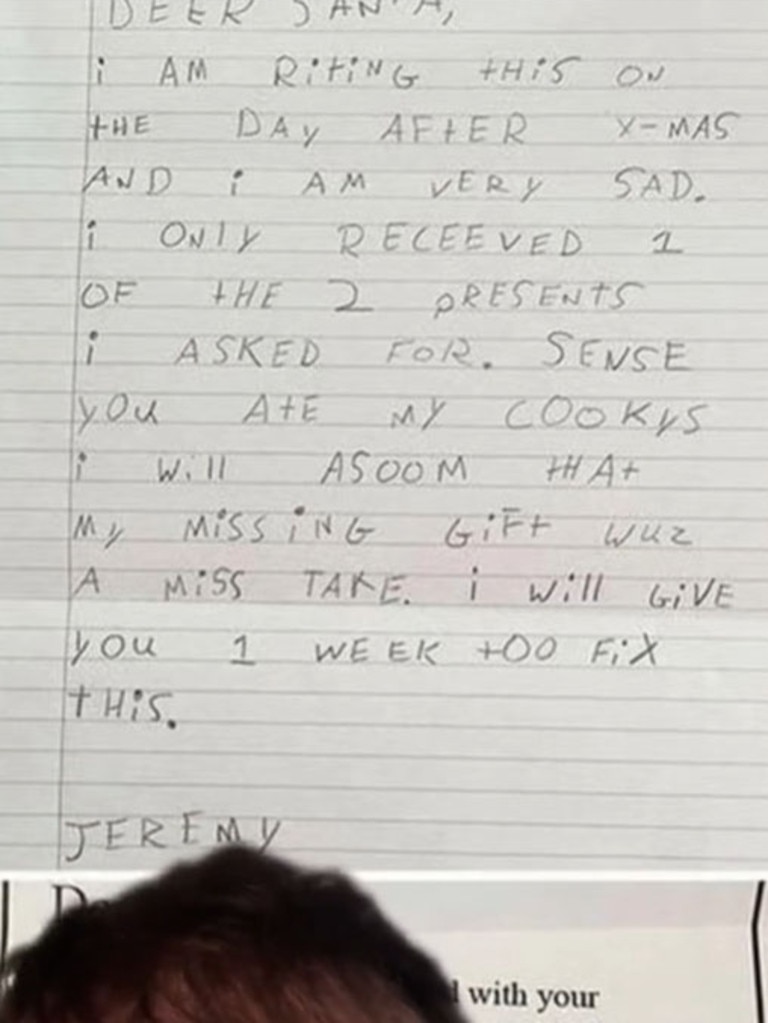 DEER SANTA,
i AM RitiNG tHiS ON
tHE DAy AFtER X-MAS
AND i AM VERy SAD.
i ONly RECEEVED 1
OF tHE 2 pRESENtS
i ASKED FOR. SENSE
yOu AtE MY COOKyS
i Will ASOOM tHAt
My MiSSiNG GiFt WuZ
A MiSS TAKE. i Will GiVE
yOu 1 WEEK tOO FiX
tHiS.
JEREMY
with your